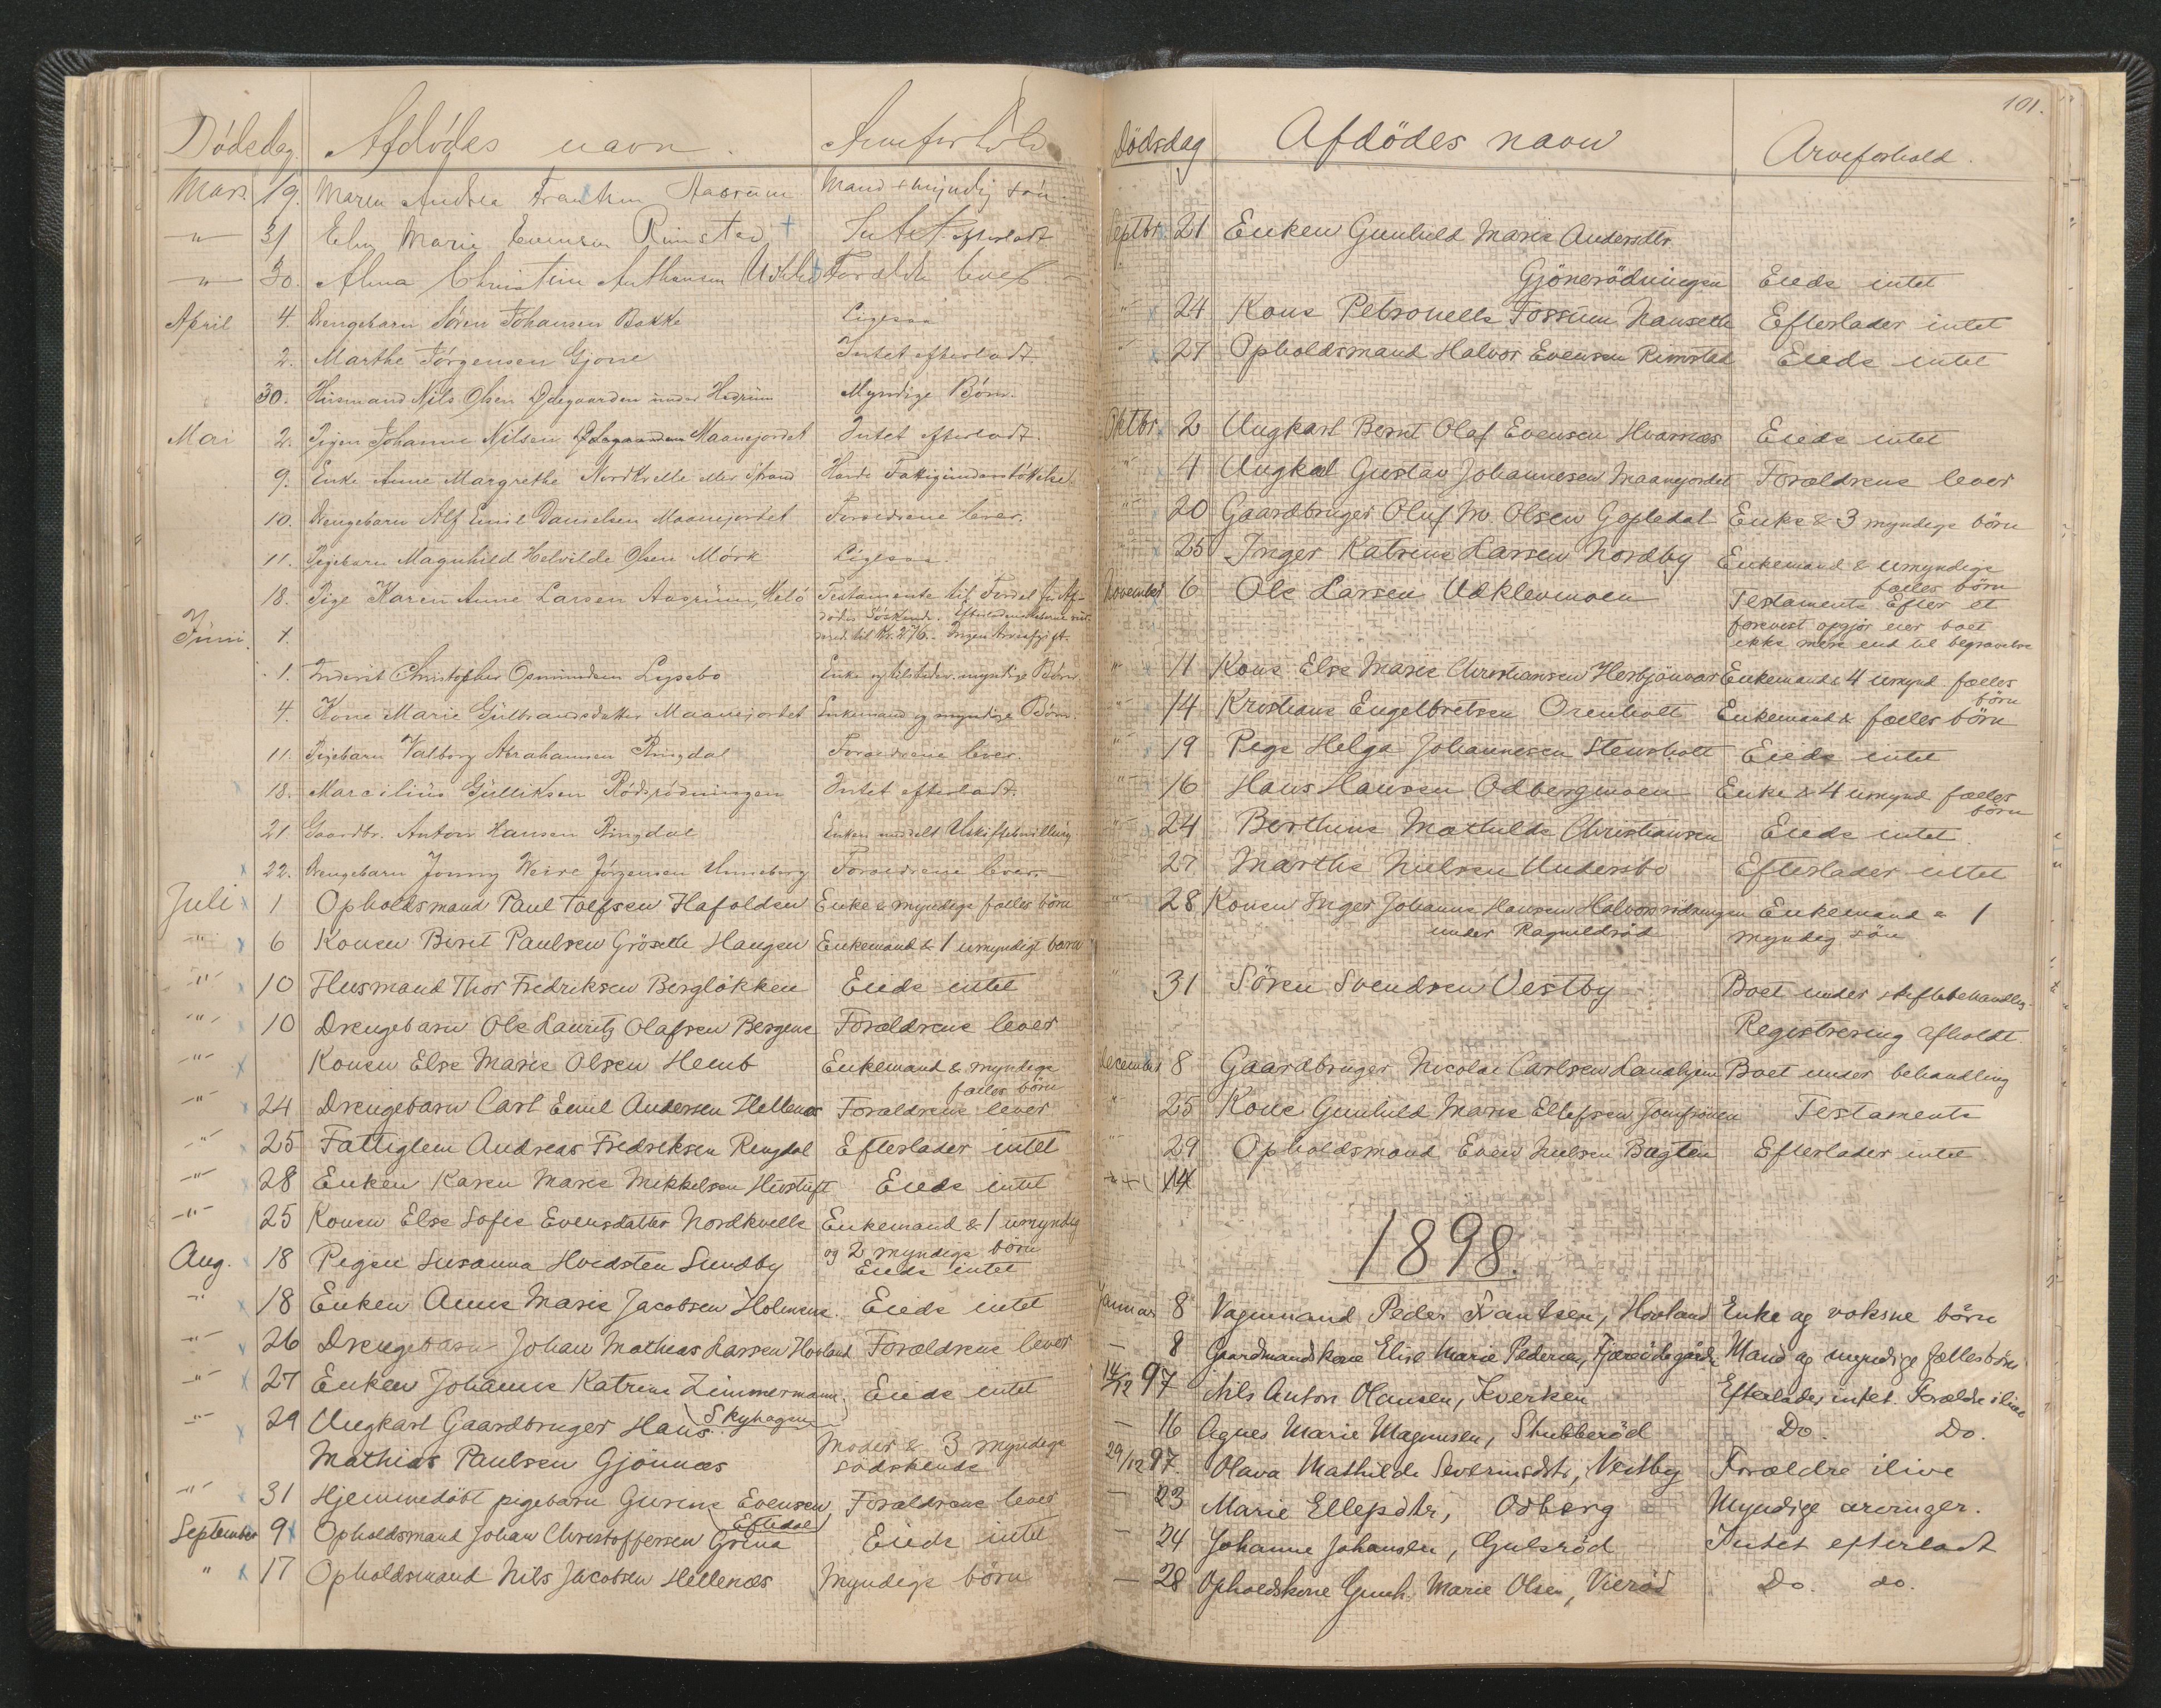 Dödsdag. Afdödes navn. Arveforhold
Mars. 19. Maren Andrea Frantsen Aasrum Mand & myndig sön.
-"- 31 Marie Evensen Rimstad Intet efterladt
-"- 30. Alma Christine Anthonsen Forældre lever
April 4. Drengebarn Sören Johansen Bakke Ligesaa
2. Marthe Jörgensen Gjone Intet efterladt.
30. Husmand Nils Olsen Ödegaarden under Hedrum Myndige Börn.
Mai 2. Pigen Johanne Nilsen Maanejordet Intet efterladt
9. Enke Anne Margrethe Nordkvelle eller Strand Havde Fattigunderstöttelse.
10. Drengebarn Alf Emil Danielsen Maanejordet Foreldrene lever.
11. Pigebarn Magnhild Helvilde Olsen Mörk Ligesaa.
18. Pige Karen Anne Larsen Aasrum, Melö Testamente til Fordel for Af-
dödes Söskende.
Juni. 1. til Kr. 276.- Ingen Arveafgift.
1. Inderst Christopher Opmundsen Lysebo Enke og myndige Börn.
4. Kone Marie Gulbrandsdatter Maanejordet Enkemand og myndige Börn.
11. Pigebarn Valborg Abrahamsen Ringdal Foreldrene lever.
18. Marcilius Gulliksen Rödsrödningen Intet efterladt.
21. Gaardbr. Anton Hansen Ringdal Enken meddelt Uskiftebevilling
22. Drengebarn Jonny Weire Jörgensen Unneberg Foreldrene lever.
Juli 1 Opholdsmand Paul Tolfsen Hafalden Enke & myndige fælles börn
-"- 6 Konen Berit Paulsen Gröselle Haugen Enkemand & 1 umyndigt barn
-"- 10 Husmand Thor Fredriksen Berglökken Eiede intet
-"- 10 Drengebarn Ole Lauritz Olafsen Bergene Forældrene lever
-"- Konen Else Marie Olsen Hemb Enkemand & myndige
fælles börn
-"- 24 Drengebarn Carl Emil Andersen Hellenæs Forældrene lever
-"- 25 Fattiglem Andreas Fredriksen Ringdal Efterlader intet
-"- 28 Enken Karen Marie Mikkelsen Hvistuft Eiede intet
-"- 25 Konen Else Sofie Evensdatter Nordkvelle Enkemand & 1 umyndig
og 2 myndige börn
Aug. 18 Pigen Susanna Hvidsten Sundby Eiede intet
-"- 18 Enken Anne Marie Jacobsen Holmene. Eiede intet
-"- 26 Drengebarn Johan Mathias Larsen Hovland Forældrene lever
-"- 27 Enken Johanne Katrine Zimmermann, Eiede intet
(Skyhagen
-"- 29 Ungkarl Gaardbruger Hans
Mathias Paulsen Gjönnæs Moder & 3 myndige
södskende
-"- 31 Hjemmedöbt pigebarn Gurine Evensen Forældrene lever
(Eftedal)
September 9 Opholdsmand Johan Christoffersen Grina Eiede intet
" 17 Opholdsmand Nils Jacobsen Hellenæs Myndige börn
101.
Dödsdag Afdödes navn Arveforhold.
Septbr. 21 Enken Gunhild Marie Andersdtr.
Gjönerödningen Eiede intet
" 24 Kone Petronelle Fossum Hanselle Efterlader intet
" 27 Opholdsmand Halvor Evensen Rimstad Eiede intet
Oktbr. 2 Ungkarl Bernt Olaf Evensen Hvarnæs Eiede intet
" 4 Ungkal Gustav Johannesen Maanejordet Forældrene lever
" 20 Gaardbruger Oluf M. Olsen Gopledal Enke & 3 myndige börn
" 25 Inger Katrine Larsen Nordby Enkemand & umyndige
fælles börn
November 6 Ole Larsen Udklevmoen Testamente Efter et
forevist opgjör eier boet
ikke mere end til begravelse
" 11 Kone Else Marie Christiansen Herbjönrød Enkemand & 4 umynd. fælles
börn
" 14 Kristiane Engelbretsen Orenholt Enkemand & fælles börn
" 19 Pige Helga Johannesen Stensholt Eiede intet
" 16 Hans Hansen Odbergmoen Enke & 4 umynd fælles
börn
" 24 Berthine Mathilde Christiansen Eiede intet.
27 Marthe Nielsen Undersbo Efterlader intet
" 28 Konen Inger Johanne Hansen Halvorsrödningen Enkemand & 1
under Ragnildröd myndig sön
" 31 Sören Svendsen Vestby Boet under skiftebehandling.
Registrering afholdt.
December 8 Gaardbruger Nicolai Carlsen Landhjem Boet under behandling
" 25 Kone Gunhild Marie Ellefsen Jomfruen Testamente
" 29 Opholdsmand Even Nielsen Bugten Efterlader intet
14
1898.
Januar 8 Vognmand Peder Frantsen, Hovland Enke og voksne börn
— 8 Gaardmandskone Elise Marie Pedersen, Mand og myndige fællesbörn
14/12 97 Nils Anton Olausen, Kverken Efterlader intet. Forældre ilive
— 16 Agnes Marie Magnusen, Stubberöd Do. Do.
29/12 97. Olava Mathilde Severinsdtr, Vestby Forældre ilive
— 23 Marie Ellefsdtr, Odberg Myndige arvinger.
— 24 Johanne Johansen, Gulsröd Intet efterladt
— 28 Opholdskone Gunh. Marie Olsen, Vieröd Do. do.